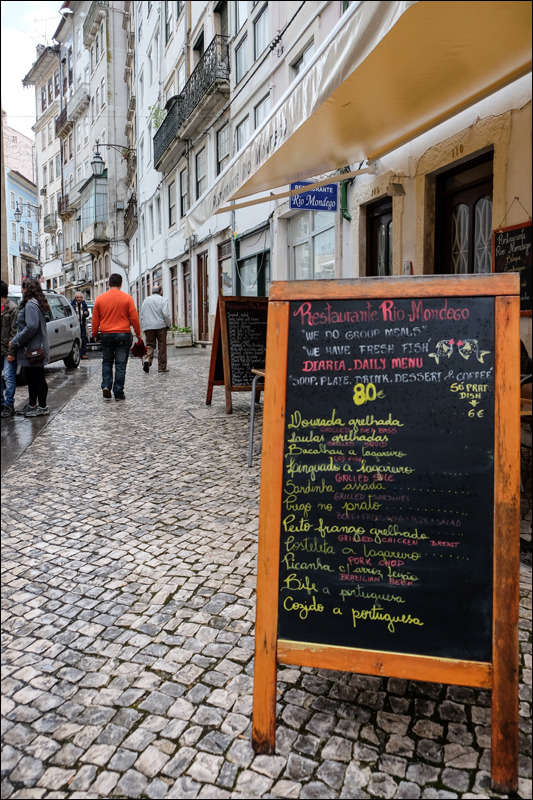 RESTAURANTE
Rio Mondego
110
Restaurante Rio Mondego
"WE DO GROUP MEALS"
"WE HAVE FRESH FISH"
DIARIA, DAILY MENU
"SOUP, PLATE, DRINK, DESSERT & COFFEE"
SÓ PRAT
DISH
6€
Dourada grelhada
GRILLED SEA BASS
Lulas grelhadas
GRILLED SQUID
Bacalhau a lagareiro
Linguado a lagareiro
GRILLED SOLE
Sardinha assada
GRILLED SARDINES
Prego no prato
Peito frango grelhado
GRILLED CHICKEN BREAST
Costeleta a lagareiro
PORK CHOP
Picanha c/ arroz feijão
BRAZILIAN BEEF
Bife a portuguesa
Cozido a portuguesa